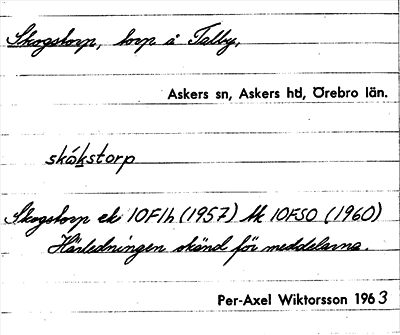 Skogstorp, torp å Talby,
Askers sn, Askers hd, Örebro län.
skókstorp
Skogstorp ek 10F1h (1957) Mk 10FSO (1960)
Härledningen okänd för meddelarna.
Per-Axel Wiktorsson 1963